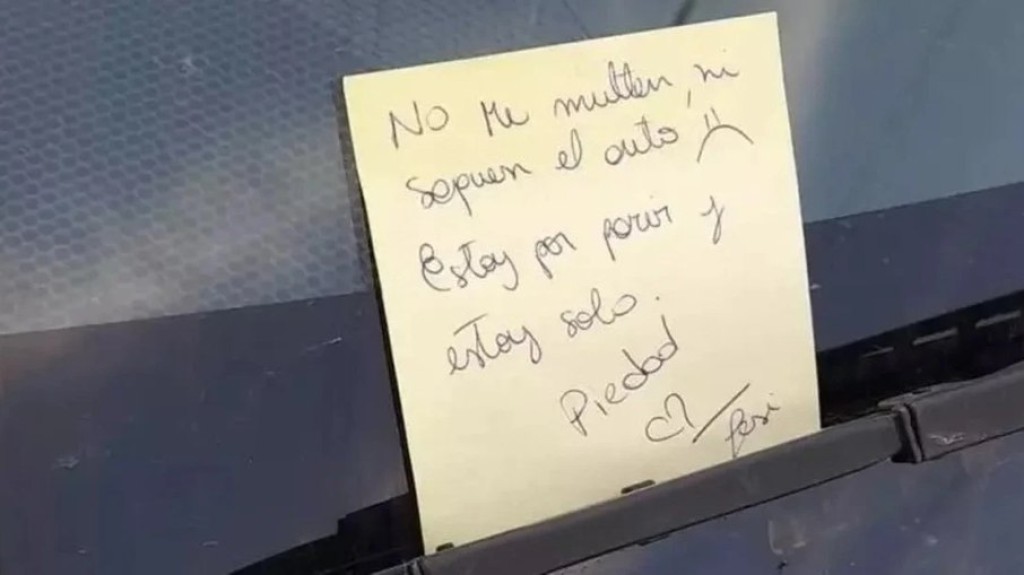 No me multen, ni
saquen el auto :(
Estoy por parir y
estoy sola.
Piedad